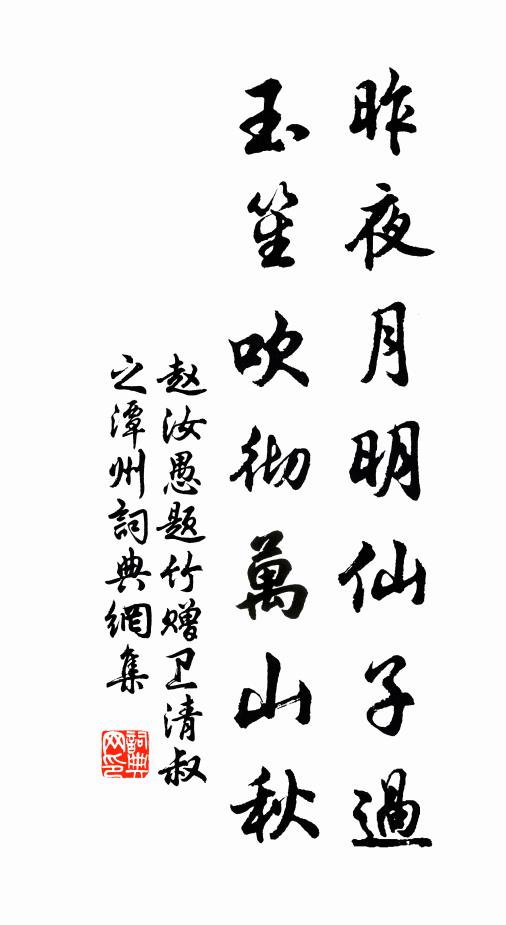 昨夜月明仙子過
玉笙吹彻萬山秋
赵汝愚题竹赠卫清叔
之潭州詞典網集
詞典
网印